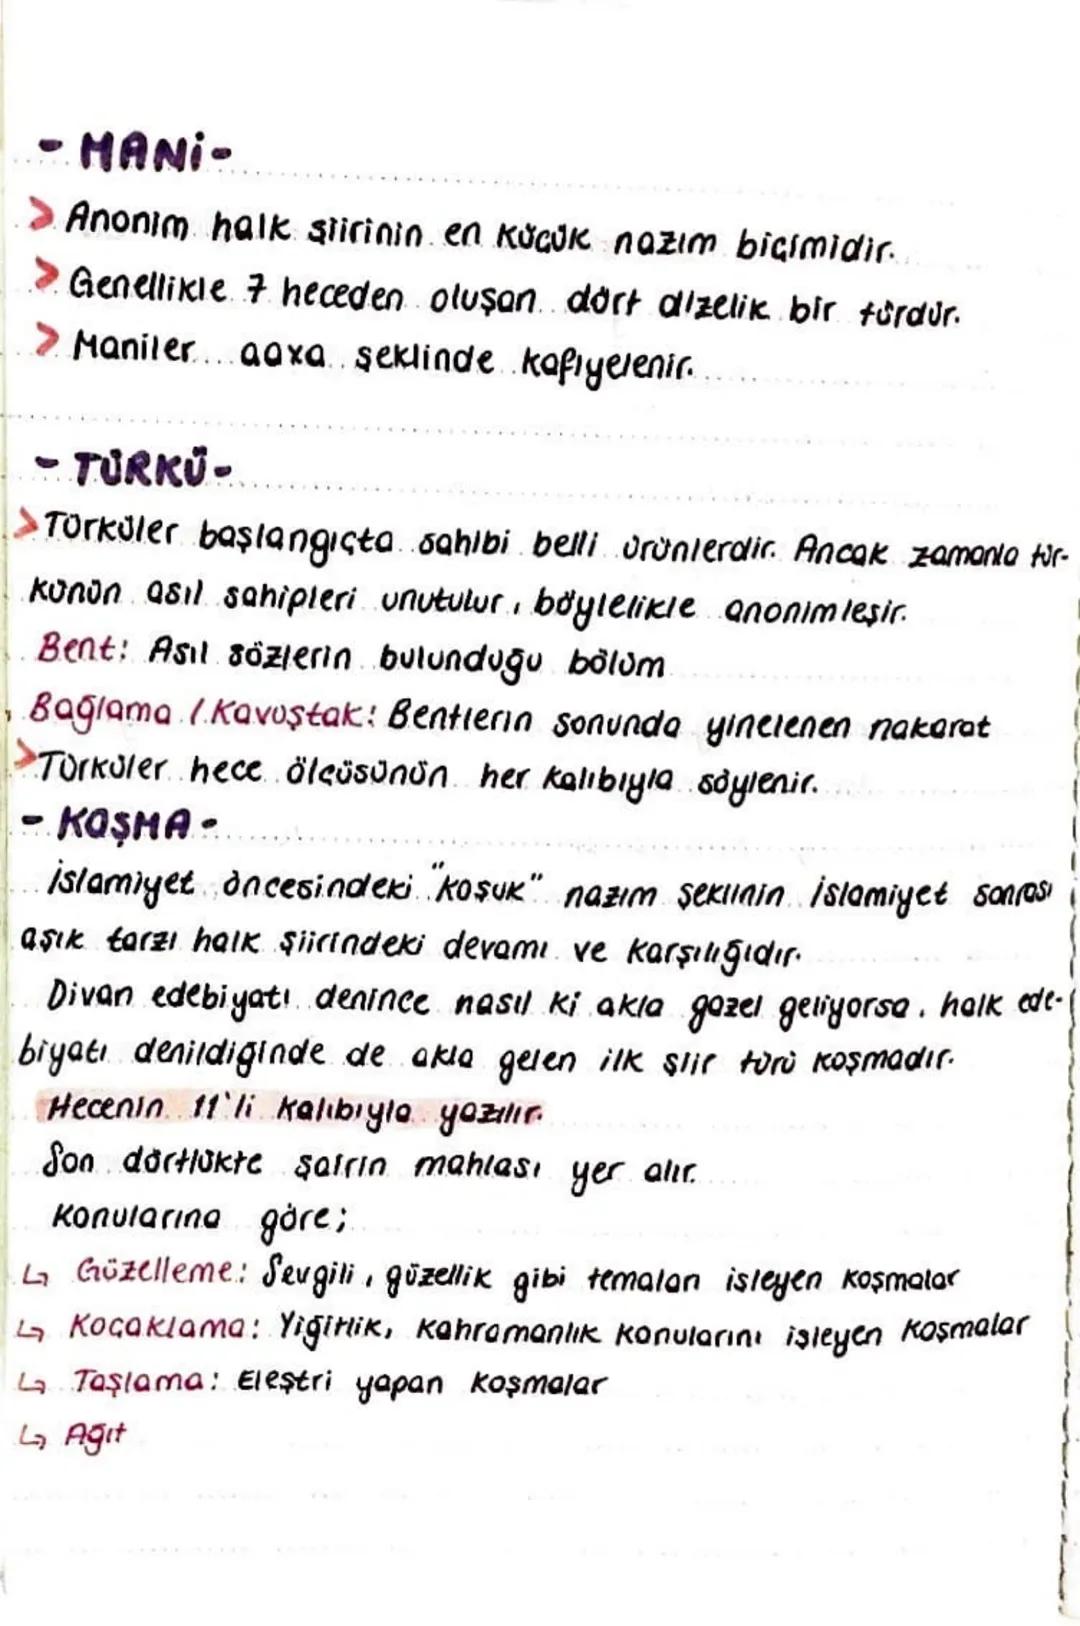 - MANİ -
> Anonim halk şiirinin en küçük nazım biçimidir.
> Genellikle 7 heceden oluşan dört dizelik bir türdür.
> Maniler aaxa şeklinde kafiyelenir.
- TÜRKÜ -
> Türküler başlangıçta sahibi belli ürünlerdir. Ancak zamanla tür-
künün asıl sahipleri unutulur, böylelikle anonimleşir.
Bent: Asıl sözlerin bulunduğu bölüm
Bağlama / Kavuştak: Bentlerin sonunda yinelenen nakarat
> Türküler hece ölçüsünün her kalıbıyla söylenir.
- KOŞMA -
İslamiyet öncesindeki "koşuk" nazım şeklinin İslamiyet sonrası
aşık tarzı halk şiirindeki devamı ve karşılığıdır.
Divan edebiyatı denince nasıl ki akla gazel geliyorsa, halk ede-
biyatı denildiğinde de akla gelen ilk şiir türü koşmadır.
Hecenin 11'li kalıbıyla yazılır.
Son dörtlükte şairin mahlası yer alır.
Konularına göre;
↳ Güzelleme: Sevgili, güzellik gibi temaları işleyen koşmalar
↳ Koçaklama: Yiğitlik, kahramanlık konularını işleyen koşmalar
↳ Taşlama: Eleştri yapan koşmalar
↳ Ağıt